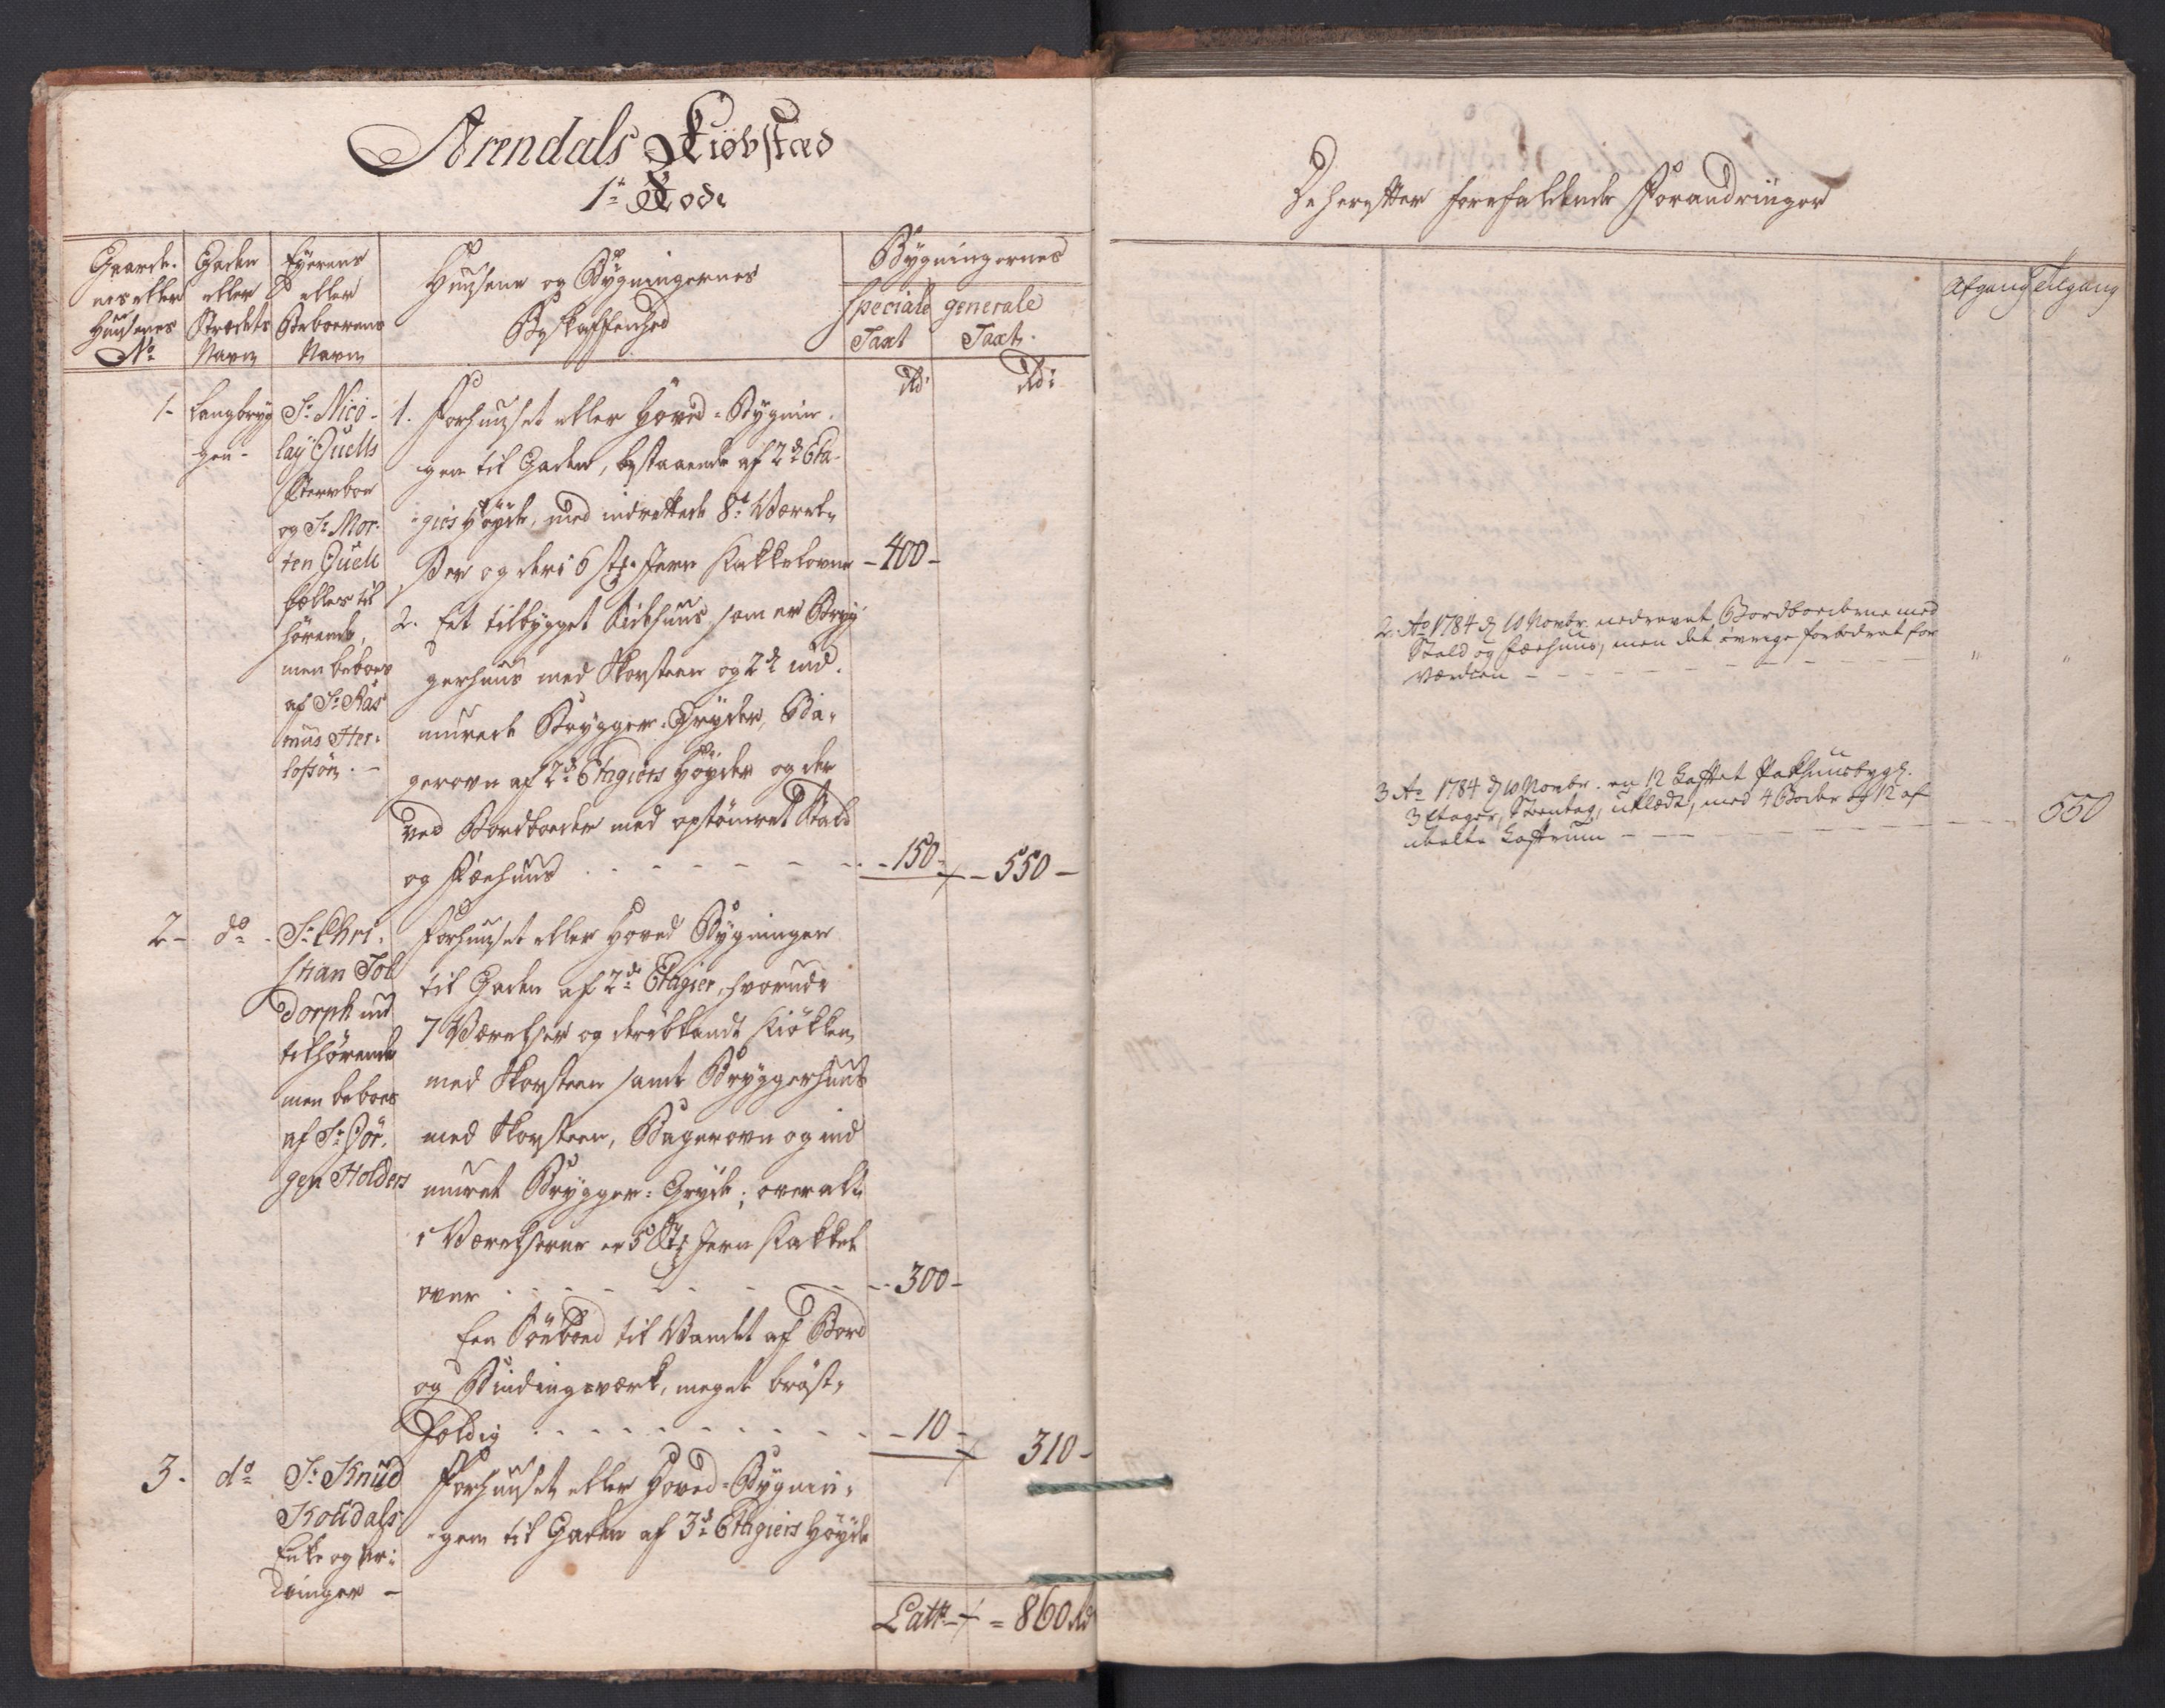 Arendals Kiøbstæd
1te Rode
Gaarde-
nes eller
Huusenes
No
Gaden
eller
Strædets
Navn
Eyerens
eller
Beboerens
Navn
Huusene og Bygningernes
Beskaffenhed
Bygningernes
speciale
Taxt
generale
Taxt.
Rd:
Rd:
1-
Langbryg
gen -
Sr. Nico-
lay Quells
Sterrboe
og Sr. Mor-
ten Quell
fælles til
hörende,
men beboes
af Sr. Ras
mus Her-
lofsön. -
1. Forhuuset eller Hoved-Bygnin-
gen til Gaden, bestaaende af 2de Eta-
gies Höyde, med indrettede 8te Værel-
ser og deri 6 stk. Jern Kakkelovne - 400 -
2. Eet tilbygget Sidehuus som er Bryg
gerhuus med Skorsteen og 2de ind-
murede Brygger-Gryder, Ba-
gerovn af 2de Etagiers Höyder og der
ved Bordboeder med optömret Stald
og Fæehuus - - - - - 150 - 550 -
2 -
do -
Sr. Chri-
stian Tol
dorph
tilhörende
men beboes
af Sr. Jör-
gen Holders
Forhuuset eller Hoved Bygningen
til Gaden af 2de Etagier, hvorudi
7 Værelser og deriblandt Kiökken
med Skorsteen samt Bryggerhuus
med Skorsteen, Bagerovn og ind
muret Brygger-Gryde; over alt
i Værelserne er 5 Stk Jern Kakkel
ovne - - - - - 300 -
Een Söeboed til Vandet af Bord
og Bindingsværk, meget bröst-
foldig - - - - - 10 - 310 -
3 -
do
Sr. Knud
Kolldals
Enke og Ar-
vinger -
Forhuuset eller Hoved-Bygnin-
gen til Gaden af 3de Etagiers Höyde
Latr - = 860 Rd
De herefter forefaldende Forandringer
Afgang
Tilgang
2. Ao 1784 d. 10 Novbr. nedrevet Bordboederne med
Stald og Fæehuus, men det övrige forbedret for
Værdien - - - - - " "
3 Ao 1784 d. 10 Novbr. en 12 Pakhuusbygn.
3 Etager, Steentag, uklædt, med 4 Boder og 12 af
deelte Loftrum - - - - - 550